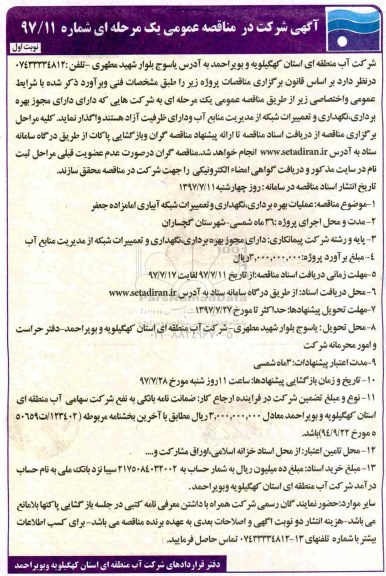 آگهی شرکت در مناقصه عمومی یک مرحله ای شماره ۹۷/۱۱
نوبت اول
شرکت آب منطقه ای استان کهگیلویه و بویراحمد به آدرس یاسوج بلوار شهید مطهری -تلفن:۰۷۴۳۳۳۳۴۸۱۲
درنظر دارد بر اساس قانون برگزاری مناقصات پروژه زیر را طبق مشخصات فنی وبرآورد ذکر شده با شرایط
عمومی واختصاصی زیر از طریق مناقصه عمومی یک مرحله ای به شرکت هایی که دارای مجوز بهره
برداری،نگهداری و تعمیرات شبکه از مدیریت منابع آب ودارای ظرفیت آزاد هستند واگذار نماید. کلیه مراحل
برگزاری مناقصه از دریافت اسناد مناقصه تا ارائه پیشنهاد مناقصه گران وبازگشایی پاکات از طریق درگاه سامانه
ستاد به آدرس www.setadiran.ir انجام خواهد شد.مناقصه گران درصورت عدم عضویت قبلی مراحل ثبت
نام در سایت مذکور و دریافت گواهی امضاء الکترونیکی را جهت شرکت در مناقصه محقق سازند.
تاریخ انتشار اسناد مناقصه در سامانه : روز چهارشنبه ۱۳۹۷/۷/۱۱
۱-موضوع مناقصه: عملیات بهره برداری،نگهداری و تعمییرات شبکه آبیاری امامزاده جعفر
۲-مدت و محل اجرای پروژه :۳۶ ماه شمسی-شهرستان گچساران
۳- پایه و رشته شرکت پیمانکاری: دارای مجوز بهره برداری،نگهداری و تعمییرات شبکه از مدیریت منابع آب
۴- مبلغ برآورد پروژه:۳,۰۰۰,۰۰۰,۰۰۰ریال
۵-مهلت زمانی دریافت اسناد مناقصه :از تاریخ ۹۷/۷/۱۱ لغایت ۹۷/۷/۱۷
۶-محل دریافت اسناد: از طریق درگاه سامانه ستاد به آدرس www.setadiran.ir
۷-مهلت تحویل پیشنهادها: حداکثر تا مورخ ۱۳۹۷/۷/۲۷
۸-محل تحویل : یاسوج بلوار شهید مطهری- شرکت آب منطقه ای استان کهگیلویه و بویراحمد-دفتر حراست
و امور محرمانه شرکت
۹-مدت اعتبار پیشنهادات:۳ماه شمسی
۱۰- تاریخ و زمان بازگشایی پیشنهادها: ساعت ۱۱روز شنبه مورخ ۹۷/۷/۲۸
۱۱- نوع و مبلغ تضمین شرکت در فراینده ارجاع کار: ضمانت نامه بانکی به نفع شرکت سهامی آب منطقه ای
استان کهگیلویه و بویراحمد معادل ۳,۰۰۰,۰۰۰,۰۰۰ ریال مطابق با آخرین بخشنامه مربوطه (۱۲۳۴۰۲/ت۵۰۶۵۹
ه مورخ ۹۴/۹/۲۲)باشد.
۱۲-محل تامین اعتبار: از محل اسناد خزانه اسلامی،اوراق مشارکت و....
۱۳-مبلغ خرید اسناد: مبلغ ده میلیون ریال به شماره حساب به ۲۱۷۵۰۸۴۰۳۲۰۰۲ سیبا نزد بانک ملی به نام حساب
درآمد شرکت آب منطقه ای استان کهگیلویه وبویراحمد.
سایر موارد:حضور نمایند گان رسمی شرکت همراه با داشتن معرفی نامه کتبی در جلسه باز گشایی پاکتها بلامانع
می باشد-هزینه انتشار دو نوبت آگهی و اصلاحات بعدی به عهده برنده مناقصه می باشد- برای کسب اطلاعات
بیشتر با شماره تلفنهای ۱۳-۰۷۴۳۳۳۳۴۸۱۲ تماس حاصل فرمایید.
دفتر قراردادهای شرکت آب منطقه ای استان کهگیلویه وبویراحمد